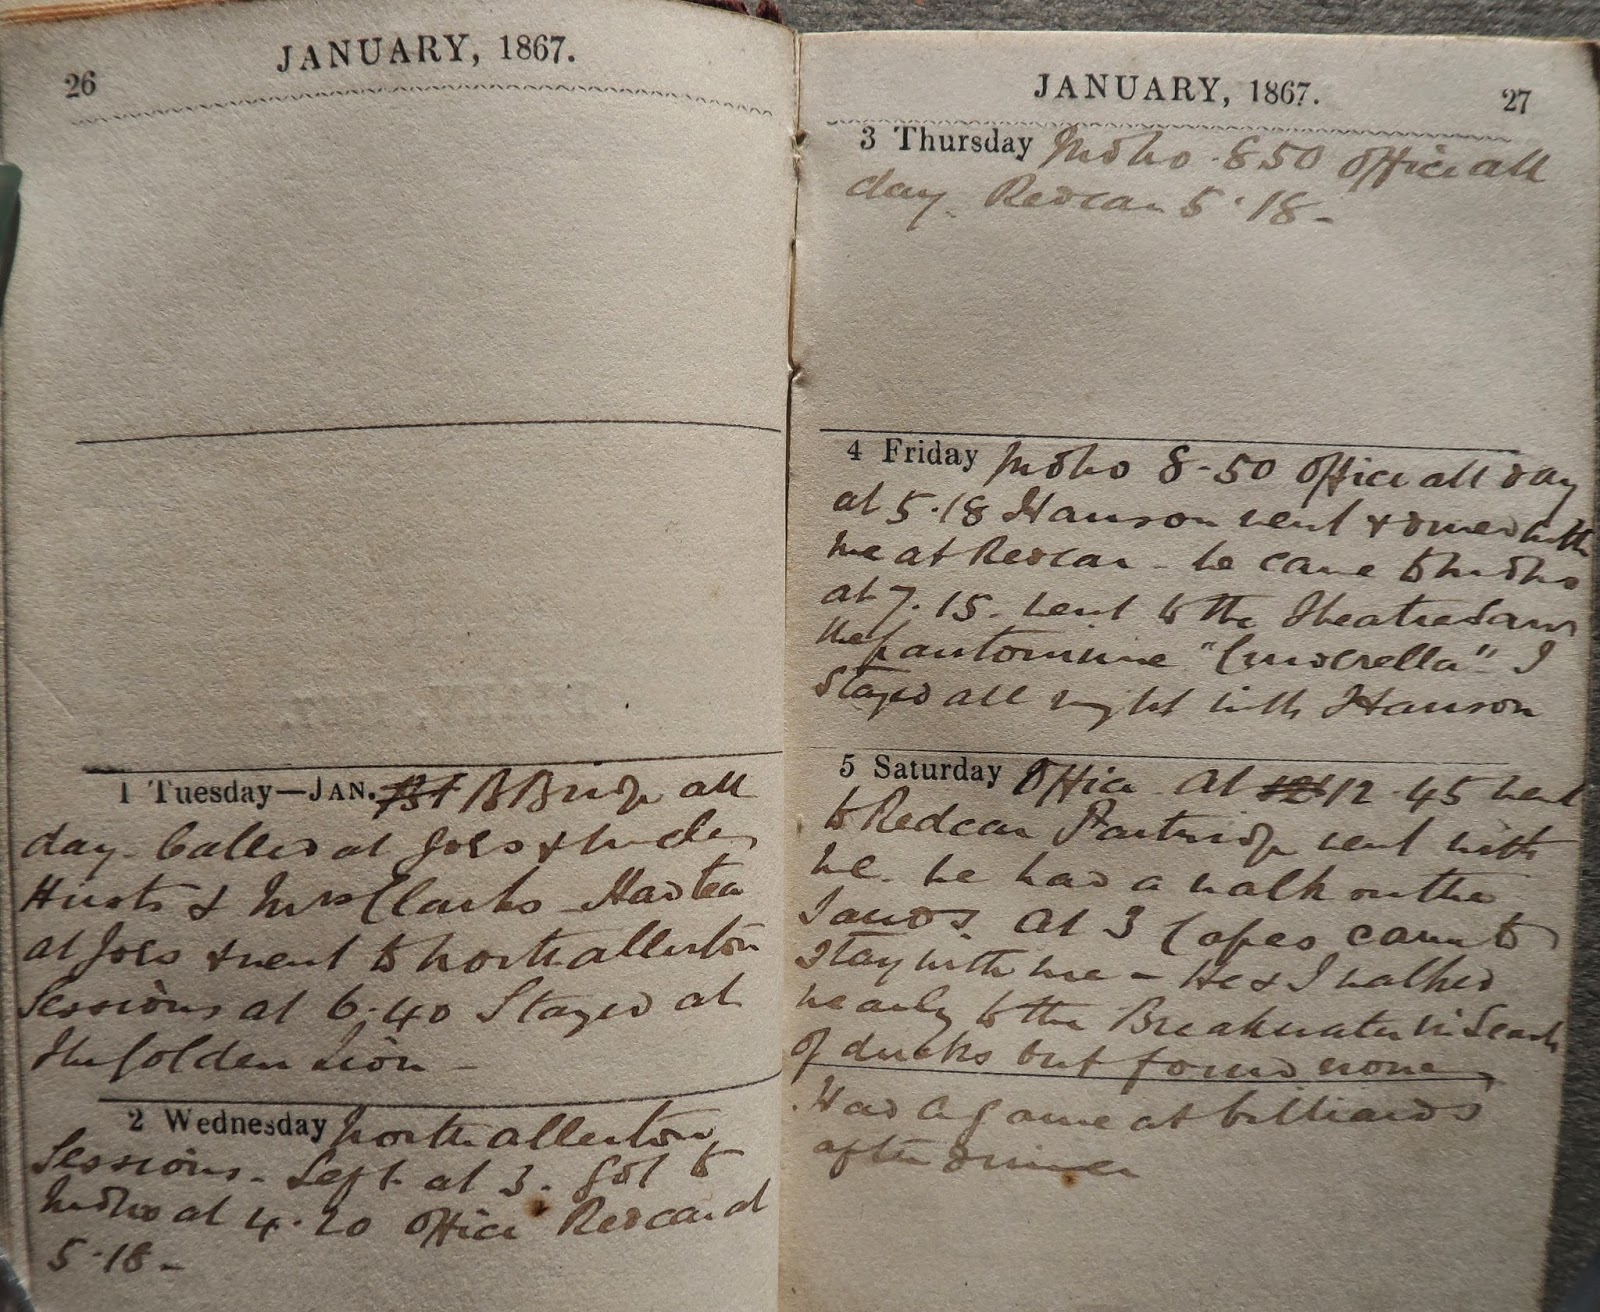 26
JANUARY, 1867.
1 Tuesday—JAN. B Bridge all
day. Called at Joes & Uncle
Hirsts & Mrs Clarks - Had tea
at Joes & went to Northallerton
Sessions at 6.40 Stayed at
the Golden Lion -
2 Wednesday Northallerton
Sessions. Left at 3. Got to
Mdbro at 4.20 Office Redcar at
5.18 -
JANUARY, 1867.
27
3 Thursday Mdbro 8.50 Office all
day. Redcar 5.18 -
4 Friday Mdbro 8-50 Office all day
at 5.18 Hanson went & dined with
me at Redcar - We came to Mdbro
at 7.15. went to the Theatre & saw
the pantomime "Cinderella" I
stayed all night with Hanson
5 Saturday Office at 12.45 went
to Redcar Partridge went with
me. We had a walk on the
sands. At 3 Capes came to
stay with me - He & I walked
nearly to the Breakwater in Search
of ducks but found none,
Had a game at billiards
after dinner